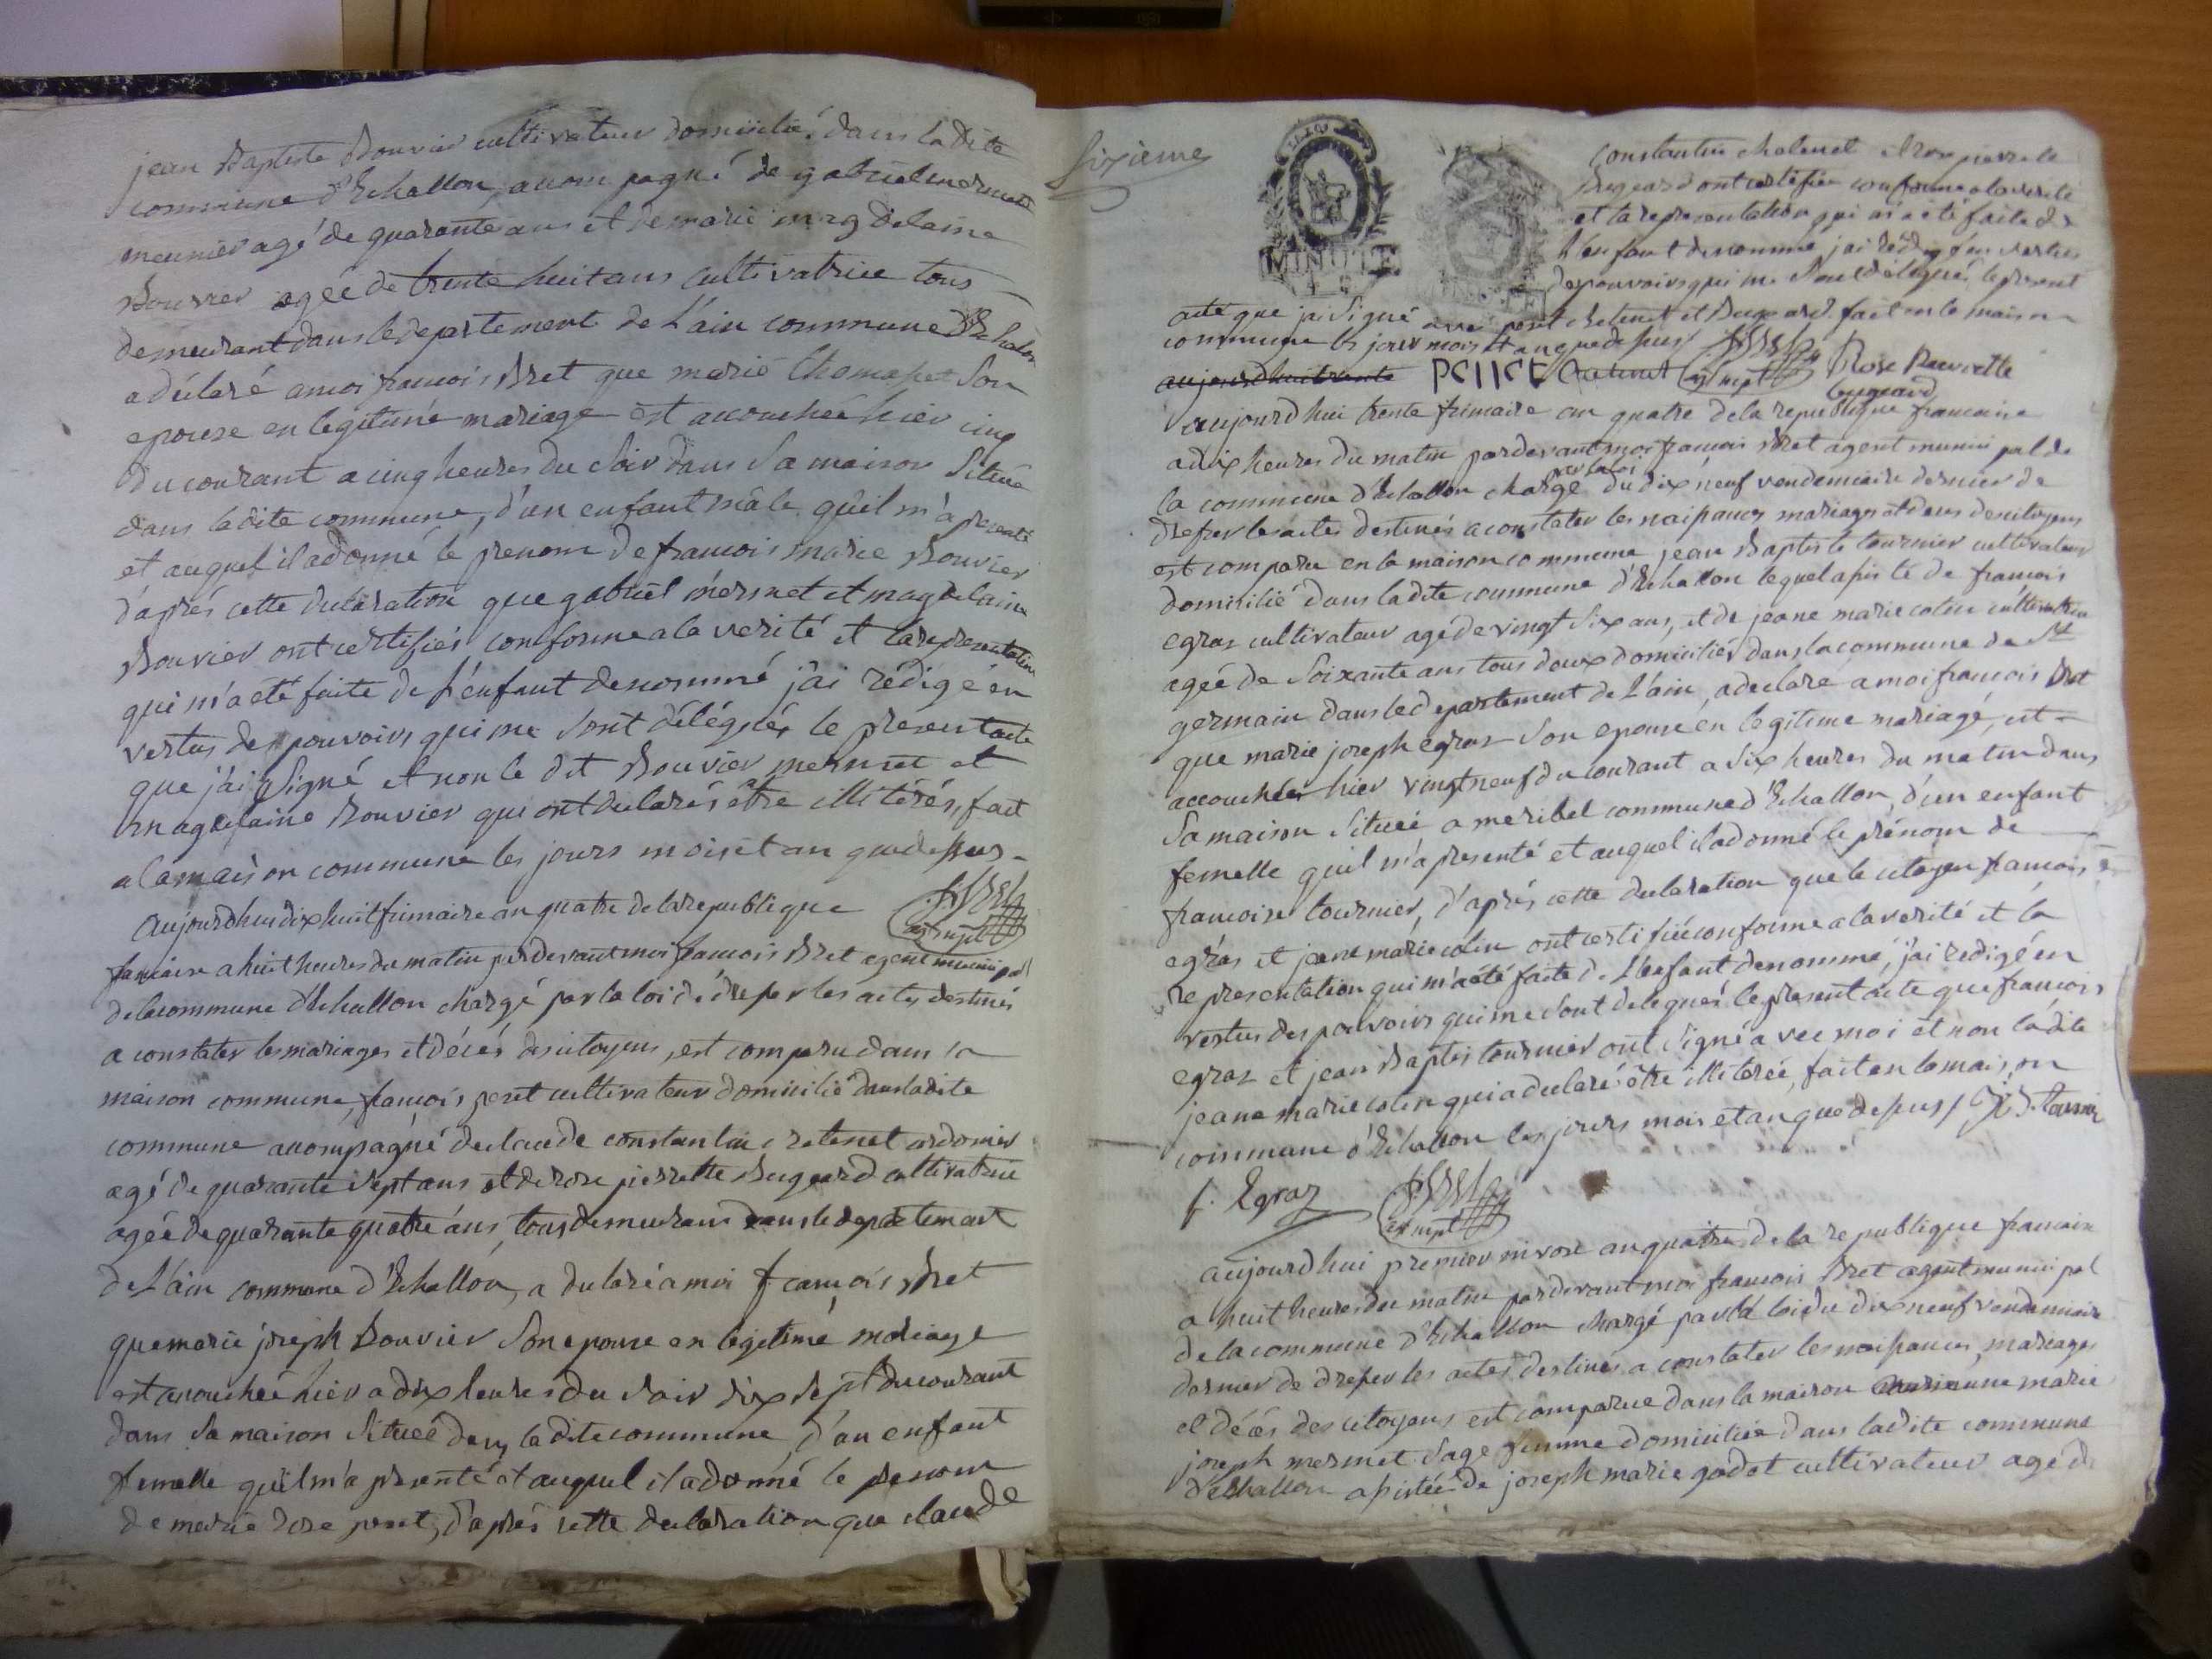 jean Baptiste Bouvier cultivateur domicilié dans ladite
commune d'Echallon, accompagné de gabriel mermet
meunier agé de quarante ans et de marie magdelaine
Bouvier agée de trente huit ans cultivatrice tous
demeurant dans le departement de L'ain commune d'Echalon
a déclaré a moi francois Bret que marie thomasset son
epouse en legitimé mariage est accouchée hier cinq
du courant a cinq heures du soir dans sa maison située
dans ladite commune, d'un enfant mâle qu'il m'a presenté
et auquel il a donné le prenom de francois marie Bouvier
d'aprés cette declaration que gabriel mermet et magdelaine
Bouvier ont certifiés conforme a la verité et la representation
qui m'a eté faite de l'enfant denommé j'ai rédigé en
vertus des pouvoirs qui me sont délégués le present acte
que j'ai signé et non le dit Bouvier mermet et
magdelaine Bouvier qui ont declarés être illitérés, fait
a la maison commune les jours mois et an que dessus
aujourdhui dix huit frimaire an quatre de la republique
francaise a huit heures du matin pardevant moi francois Bret agent municipal
de la commune d'Echallon chargé par la loi de dresser les actes destinés
a constater les mariages et décés des citoyens, est comparu dans la
maison commune, francois poncet cultivateur domicilié dans ladite
commune accompagné de claude constantin chatenet cordonier
agé de quarante sept ans et de rose pierrette Bugeard cultivatrice
agée de quarante quatre ans, tous demeurans dans le departement
de L'ain commune d'Echallon, a declaré a moi francois Bret
que marie joseph Bouvier son epouse en legitimé mariage
est accouchée hier a dix heures du soir dix sept du courant
dans sa maison située dans ladite commune, d'un enfant
femelle qu'il m'a presenté et auquel il a donné le prenom
de marie rose poncet, d'aprés cette declaration que claude
Sixieme
MINUTE
constantin chatenet et rose pierrette
Bugeard ont certifiée conforme a la verité
et la representation qui m'a été faite de
l'enfant denommé j'ai rédigé en vertus
des pouvoirs qui me sont délégués le present
acte que j'ai signé avec poncet chatenet et Bugeard fait en la maison
commune les jour mois et an que dessus
aujourdhui trente PONCET Chatenet ag mpl Rose Pierrette
Bugeard
aujourd hui trente frimaire an quatre de la republique francaise
a dix heures du matin pardevant moi francois Bret agent municipal de
la commune d'Echallon chargé par la loi du dix neuf vendemiaire dernier de
dresser les actes destinés a constater les naissances mariages et deces des citoyens
est comparu en la maison commune jean Baptiste tournier cultivateur
domicilié dans ladite commune d'Echallon lequel assisté de francois
egraz cultivateur agé de vingt six ans, et de jeane marie colin cultivatrice
agée de soixante ans tous deux domiciliés dans la commune de St
germain dans le departement de L'ain, a declaré a moi francois Bret
que marie joseph egraz son epouse en legitime mariagé, est
accouchée hier vingt neuf du courant a six heures du matin dans
sa maison située a meribel commune d'Echallon, d'un enfant
femelle qu'il m'a presenté et auquel il a donné le prénom de
francoise tournier, d'aprés cette declaration que le citoyen francois
egraz et jeane marie colin ont certifiée conforme a la verité et la
representation qui m'a été faite de L'enfant denommé, j'ai redigé en
vertus des pouvoirs qui me sont delegués le present acte que francois
egraz et jean Baptis tournier ont signé avec moi et non ladite
jeane marie colin qui a declaré être illiterée, fait en la maison
commune d'Echallon les jours mois et an que dessus / J B tournier
f. Egraz ag mpl
aujourd hui premier nivose an quatre de la republique francaise
a huit heures du matin pardevant moi francois Bret agent municipal
de la commune d'Echallon chargé par la loi du dix neuf vendemiaire
dernier de dresser les actes destinés a constater les naissances, mariages
et décés des citoyens est comparue dans la maison commune marie
joseph mermet sage femme domiciliée dans ladite commune
d'Echallon assistée de joseph marie godet cultivateur agé de